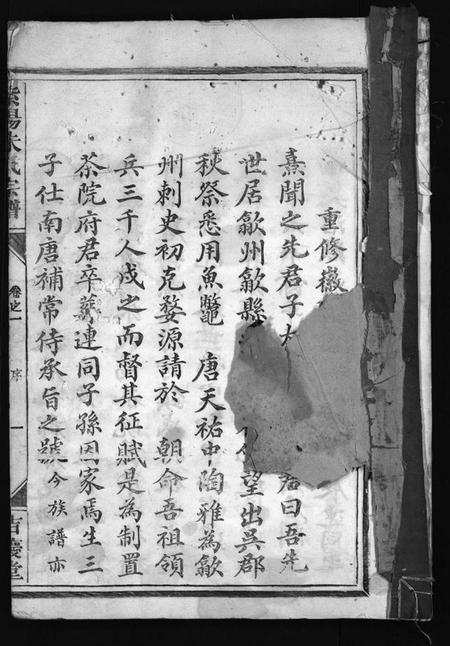 重修徽
熹聞之先君子太 君曰吾先
世居歙州歙縣 望出吳郡
秋祭悉用魚鼈 唐天祐中陶雅為歙
州刺史初克婺源請於 朝命吾祖領
兵三千人戍之而督其征賦是為制置
茶院府君卒葬連同子孫因家焉生三
子仕南唐補常侍承旨之號今族譜亦
紫陽朱氏宗譜
卷之一
序
一
吉慶堂